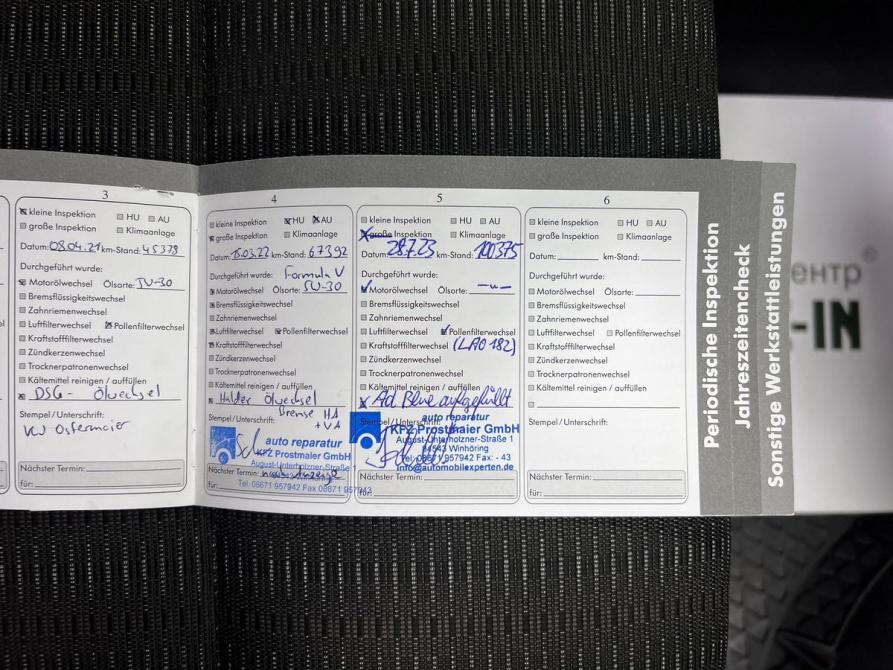 3
kleine Inspektion HU AU
große Inspektion Klimaanlage
Datum: 08.04.21 km-Stand: 45378
Durchgeführt wurde:
Motorölwechsel Ölsorte: 5W-30
Bremsflüssigkeitswechsel
Zahnriemenwechsel
Luftfilterwechsel Pollenfilterwechsel
Kraftstofffilterwechsel
Zündkerzenwechsel
Trocknerpatronenwechsel
Kältemittel reinigen / auffüllen
DSG- Ölwechsel
Stempel/Unterschrift:
VW Ostermaier
Nächster Termin:
für:
4
kleine Inspektion HU AU
große Inspektion Klimaanlage
Datum: 15.03.22 km-Stand: 67392
Durchgeführt wurde: Formula V
Motorölwechsel Ölsorte: 5W-30
Bremsflüssigkeitswechsel
Zahnriemenwechsel
Luftfilterwechsel Pollenfilterwechsel
Kraftstofffilterwechsel
Zündkerzenwechsel
Trocknerpatronenwechsel
Kältemittel reinigen / auffüllen
Haldex Ölwechsel
Bremse HA
Stempel/Unterschrift: + VA
auto reparatur
KFZ Prostmaier GmbH
August-Unterholzner-Straße 1
Nächster Termin: nach Anzeige
Tel. 08671 957942 Fax 08671 957943
für:
5
kleine Inspektion HU AU
große Inspektion Klimaanlage
Datum: 28.7.23 km-Stand: 100375
Durchgeführt wurde:
Motorölwechsel Ölsorte: -"-
Bremsflüssigkeitswechsel
Zahnriemenwechsel
Luftfilterwechsel Pollenfilterwechsel
Kraftstofffilterwechsel (LAO 182)
Zündkerzenwechsel
Trocknerpatronenwechsel
Kältemittel reinigen / auffüllen
Ad Blue aufgefüllt
Stempel/Unterschrift:
auto reparatur
KFZ Prostmaier GmbH
August-Unterholzner-Straße 1
84543 Winhöring
Tel. 08671 957942 Fax: - 43
info@automobilexperten.de
Nächster Termin:
für:
6
kleine Inspektion HU AU
große Inspektion Klimaanlage
Datum: km-Stand:
Durchgeführt wurde:
Motorölwechsel Ölsorte:
Bremsflüssigkeitswechsel
Zahnriemenwechsel
Luftfilterwechsel Pollenfilterwechsel
Kraftstofffilterwechsel
Zündkerzenwechsel
Trocknerpatronenwechsel
Kältemittel reinigen / auffüllen
Stempel/Unterschrift:
Nächster Termin:
für:
Periodische Inspektion
Jahreszeitencheck
Sonstige Werkstattleistungen
ентр®
-IN